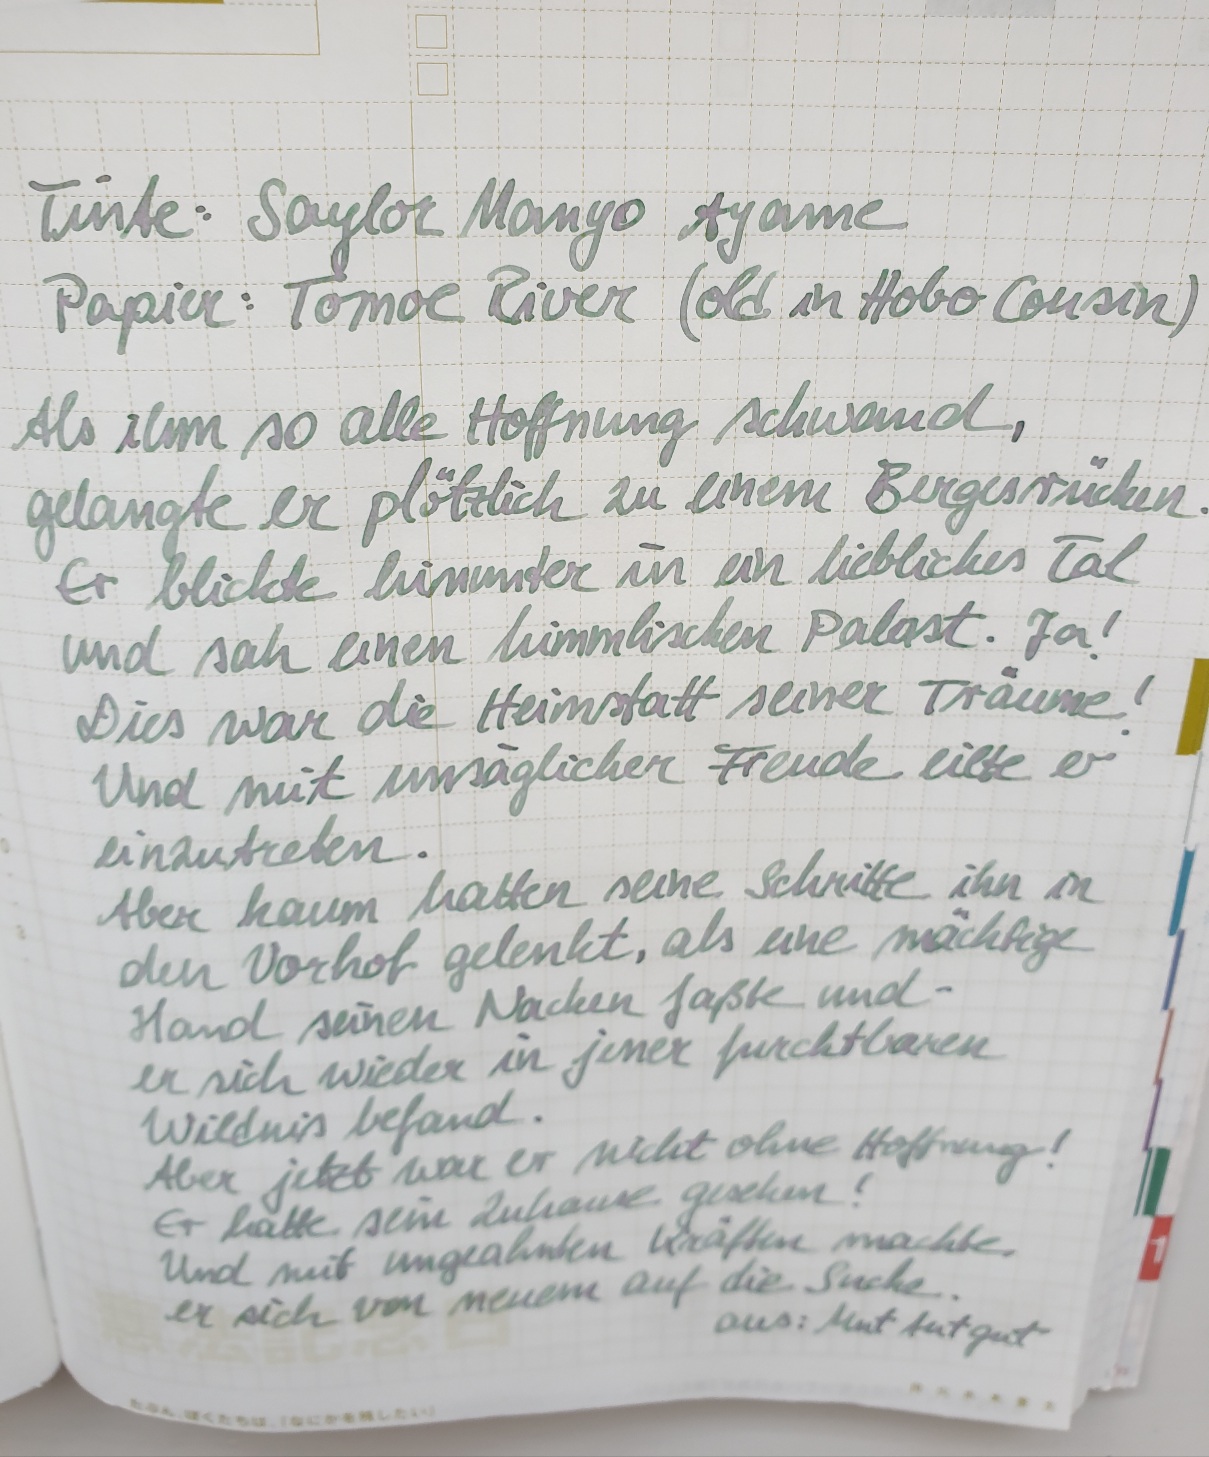 Tinte: Saylor Manyo Ayame
Papier: Tomoe River (old in Hobo Cousin)
Als ihm so alle Hoffnung schwand,
gelangte er plötzlich zu einem Bergesrücken.
Er blickte hinunter in ein liebliches Tal
und sah einen himmlischen Palast. Ja!
Dies war die Heimstatt seiner Träume!
Und mit unsäglicher Freude eilte er
einzutreten.
Aber kaum hatten seine Schritte ihn in
den Vorhof gelenkt, als eine mächtige
Hand seinen Nacken faßte und -
er sich wieder in jener furchtbaren
Wildnis befand.
Aber jetzt war er nicht ohne Hoffnung!
Er hatte sein Zuhause gesehen!
Und mit ungeahnten Kräften machte
er sich von neuem auf die Suche.
aus: Mut tut gut
1
たぶん、ぼくたちは、「なにかを残したい」